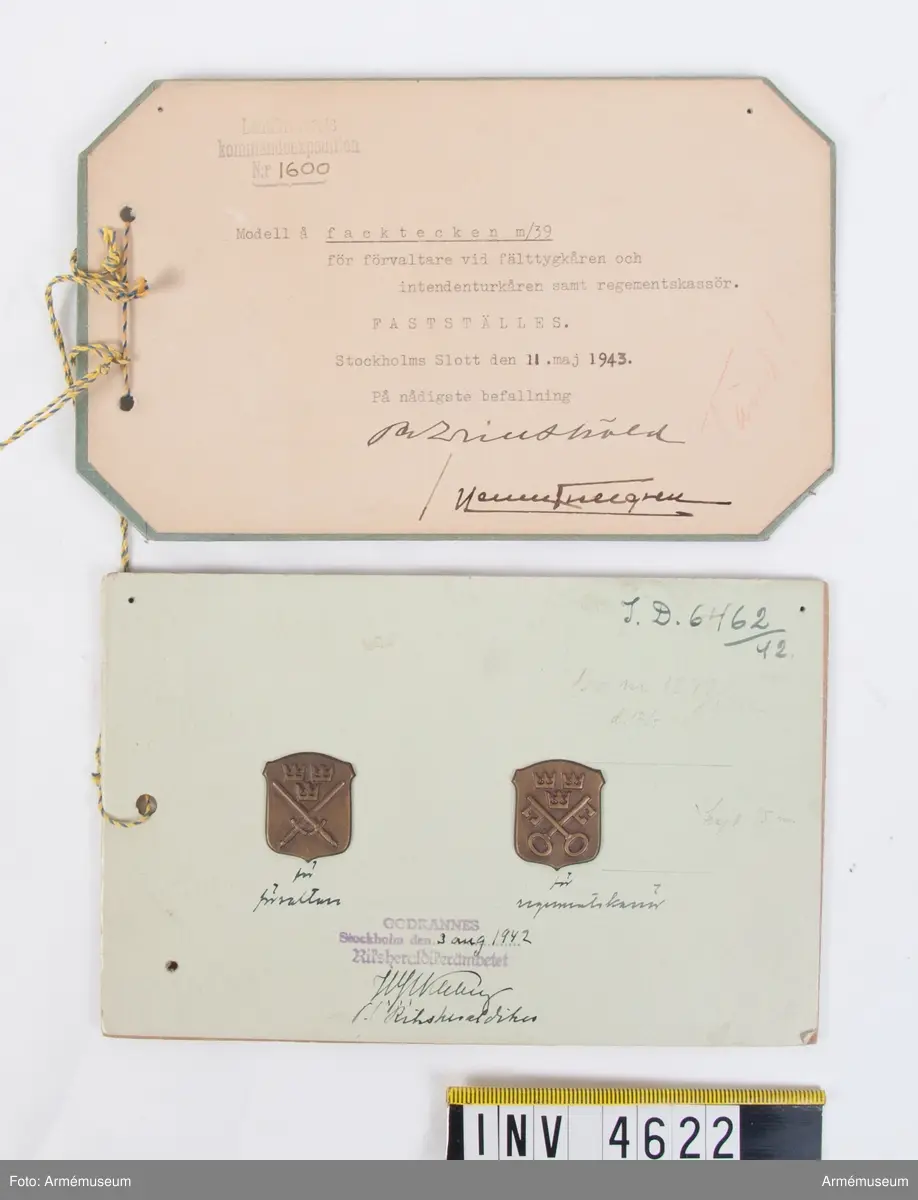 kommandoexpedition
N:r 1600
Modell å facktecken m/39
för förvaltare vid fälttygkåren och
intendenturkåren samt regementskassör.
FASTSTÄLLES.
Stockholms Slott den 11.maj 1943.
På nådigste befallning
J. D. 6462/42.
för
förvaltare
för
regementskassör
GODKÄNNES
Stockholm den 3 aug. 1942
Riksheraldikerämbetet
Riksheraldiker
INV 4622
Foto: Armémuseum
Armémuseum